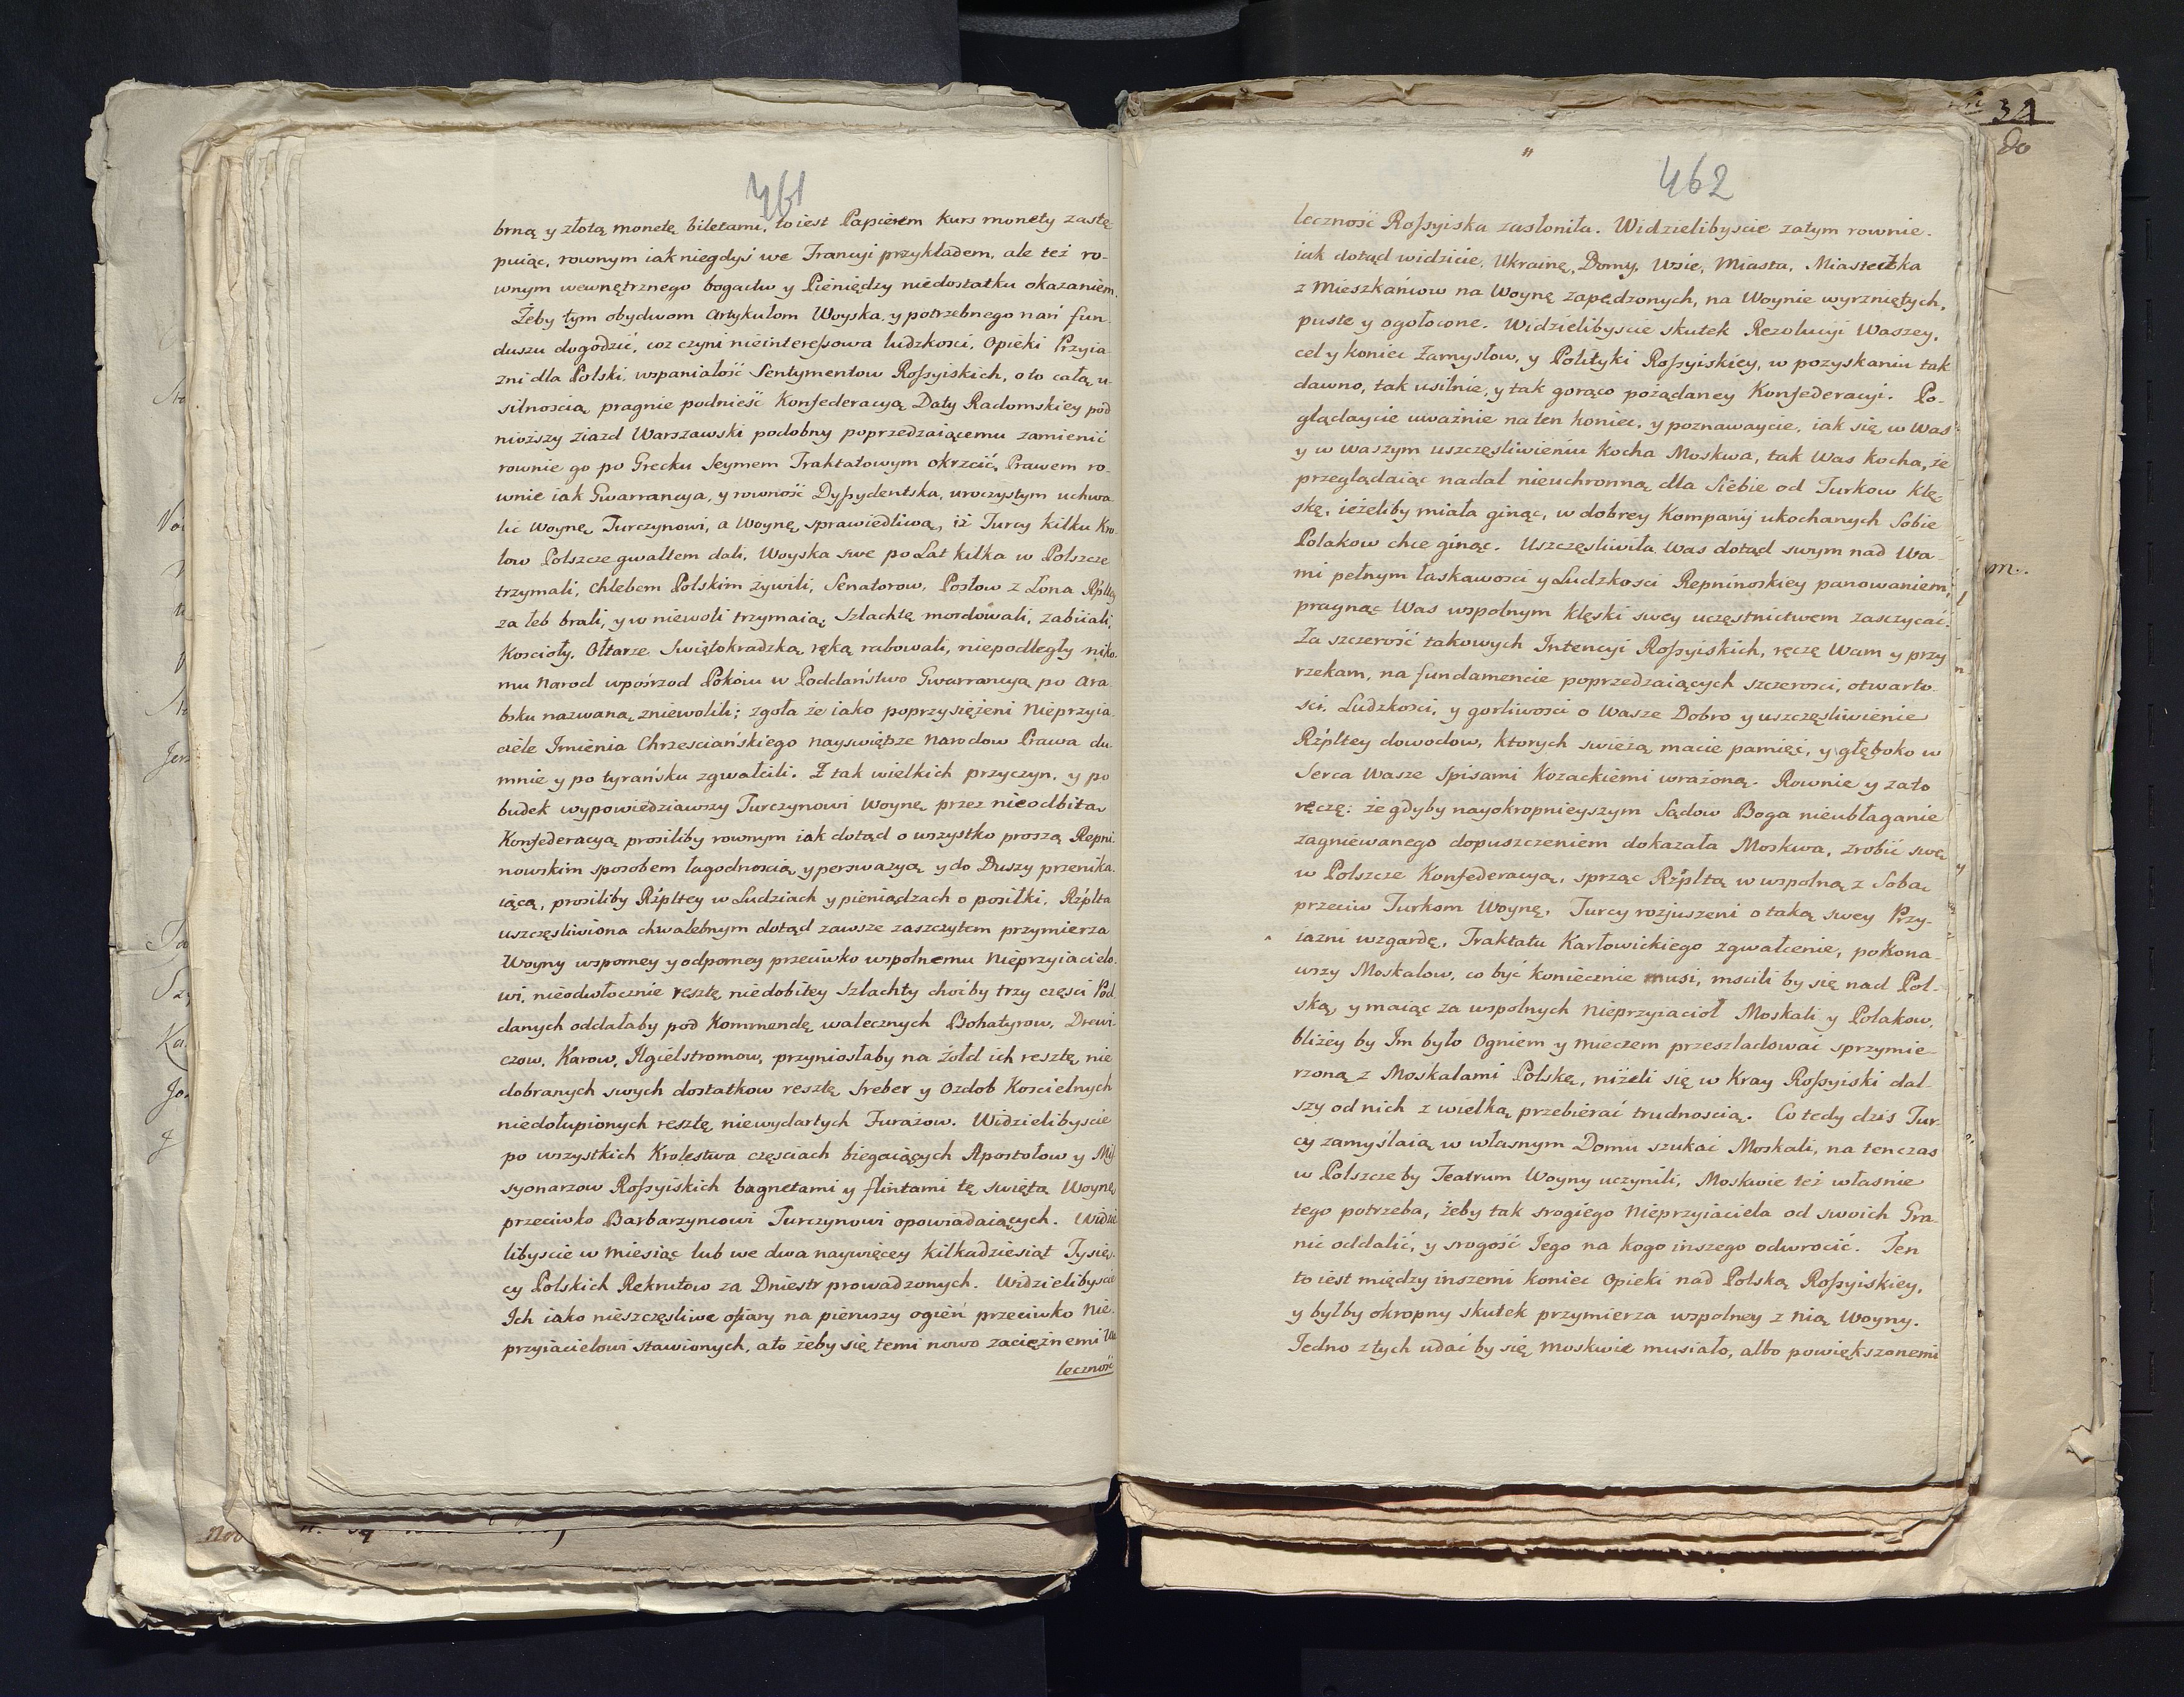 461
brną y złotą monetę biletami, to iest Papierem kurs monety zastę-
puiąc, rownym iak niegdyś we Francyi przykładem, ale też ro-
wnym wewnętrznego bogactw y Pieniędzy niedostatku okazaniem.
Żeby tym obydwom Artykułom Woyska, y potrzebnego nań fun-
duszu dogodzić, coz czyni nieinteressowa ludzkosci, Opieki Przyia-
zni dla Polski, wspaniałość Sentymentow Rossyiskich, oto całą u-
silnoscią pragnie podnieść Konfederacyą Daty Radomskiey pod-
nioższy ziazd Warszawski podobny poprzedzaiącemu zamienić
rownie go po Grecku Seymem Traktatowym okrzcić, Prawem ro-
wnie iak Gwarrancya, y rowność Dyssydentska, uroczystym uchwa-
lic Woynę Turczynowi, a Woynę sprawiedliwą, iż Turcy kilku Kro-
low Polszcze gwałtem dali, Woyska swe po Lat kilka w Polszcze
trzymali, Chlebem Polskim żywili, Senatorow, Posłow z Łona Rzpltey
za łeb brali, y w niewoli trzymaią; Szlachtę mordowali, zabiiali,
Kościoły, Ołtarze Swiętokradzką ręką rabowali, niepodległy niko-
mu Narod wpośrzod Pokoiu w Poddaństwo Gwarrancyą po Ara-
bsku nazwaną, zniewolili; zgoła że iako poprzysiężeni Nieprzyia-
ciele Imienia Chrzesciańskiego nayswiętsze Narodow Prawa du-
mnie y po tyrańsku zgwałcili. Z tak wielkich przyczyn, y po-
budek wypowiedziawszy Turczynowi Woynę, przez nieodbitą
Konfederacyą prosiliby rownym iak dotąd o wszystko proszą Repni-
nowskim sposobem łagodnoscią y perswazyą y do Duszy przenika-
iącą, prosiliby Rzpltey w Ludziach y pieniądzach o posiłki, Rzplta
uszczęsliwiona chwalebnym dotąd zawsze zaszczytem przymierza
Woyny wsporney y odporney przeciwko wspolnemu Nieprzyiacielo-
wi, nieodwłocznie resztę niedobitey Szlachty choiby trzy częsci Pod-
danych oddałaby pod Kommendę walecznych Bohatyrow, Drewi-
czow, Karow, Ilgielstromow, przyniosłaby na żołd ich resztę nie
dobranych swych dostatkow resztę Sreber y Ozdob Koscielnych
niedołupionych resztę niewydartych Furażow. Widzielibyscie
po wszystkich Krolestwa częsciach biegaiących Apostołow y Mis-
syonarzow Rossyiskich bagnetami y flintami tę swiętą Woynę
przeciwko Barbarzyncowi Turczynowi opowiadaiących. Widzie-
libyscie w miesiąc lub we dwa naywięcey kilkadziesiąt Tysię-
cy Polskich Rekrutow za Dniestr prowadzonych. Widzielibyscie
Ich iako nieszczęsliwe ofiary na pierwszy ogień przeciwko Nie-
przyiacielowi stawionych, ato żeby się temi nowo zaciężnemi Wa-
leczność
462
leczność Rossyiska zasłoniła. Widzielibyscie zatym rownie.
iak dotąd widzicie, Ukrainę, Domy, Wsie, Miasta, Miasteczka
z Mieszkańcow na Woynę zapędzonych, na Woynie wyrzniętych,
puste y ogołocone. Widzielibyscie skutek Rezolucyi Waszey,
cel y koniec Zamysłow, y Polityki Rossyiskiey, w pozyskaniu tak
dawno, tak usilnie, y tak gorąco pożądaney Konfederacyi. Po-
glądaycie uważnie na ten koniec, y poznawaycie, iak się w Was
y w waszym uszczęsliwieniu kocha Moskwa, tak Was kocha, że
przeglądaiąc nadal nieuchronną dla Siebie od Turkow Klę-
skę, ieżeliby miała ginąc, w dobrey Kompanij ukochanych Sobie
Polakow chce ginąc. Uszczęsliwiła Was dotąd swym nad Wa-
mi pełnym łaskawosci y Ludzkosci Repninoskiey panowaniem,
pragnąc Was wspolnym klęski swey uczęstnictwem zasczycać.
Za szczerość takowych Intencyi Rossyiskich, ręczę Wam y przy
rzekam, na fundamencie poprzedzaiących szczerosci, otwarto-
sci, Ludzkosci, y gorliwosci o Wasze Dobro y uszczęsliwienie
Rzpltey dowodow, ktorych swieżą macie pamięć, y głęboko w
Serca Wasze Spisami Kozackiemi wrażoną. Rownie y zato
ręczę: że gdyby nayokropnieyszym Sądow Boga nieubłaganie
zagniewanego dopuszczeniem dokazała Moskwa, zrobić swą
w Polszcze Konfederacyą, sprząc Rzpltą w wspolną z Sobą
przeciw Turkom Woynę, Turcy rozjuszeni o taką swey Przy-
iazni wzgardę, Traktatu Karłowickiego zgwałcenie, pokona-
wszy Moskalow, co być koniecznie musi, mscili by się nad Pol-
ską, y maiąc za wspolnych Nieprzyiacioł Moskali y Polakow,
bliżey by Im było Ogniem y mieczem przesladować sprzymie-
rzoną z Moskalami Polskę, niżeli się w Kray Rossyiski dal-
szy od nich z wielką przebierać trudnoscią. Co tedy dzis Tur-
cy zamyślaią w własnym Domu szukać Moskali, na tenczas
w Polszcze by Teatrum Woyny uczynili, Moskwie też własnie
tego potrzeba, żeby tak srogiego Nieprzyiaciela od swoich Gra-
nic oddalić, y srogość Jego na kogo inszego odwrocić. Ten
to iest między inszemi koniec Opieki nad Polską Rossyiskiey,
y byłby okropny skutek przymierza wspolney z Nią Woyny.
Jedno z tych udać by się Moskwie musiało, albo powiększonemi
34
do
m.